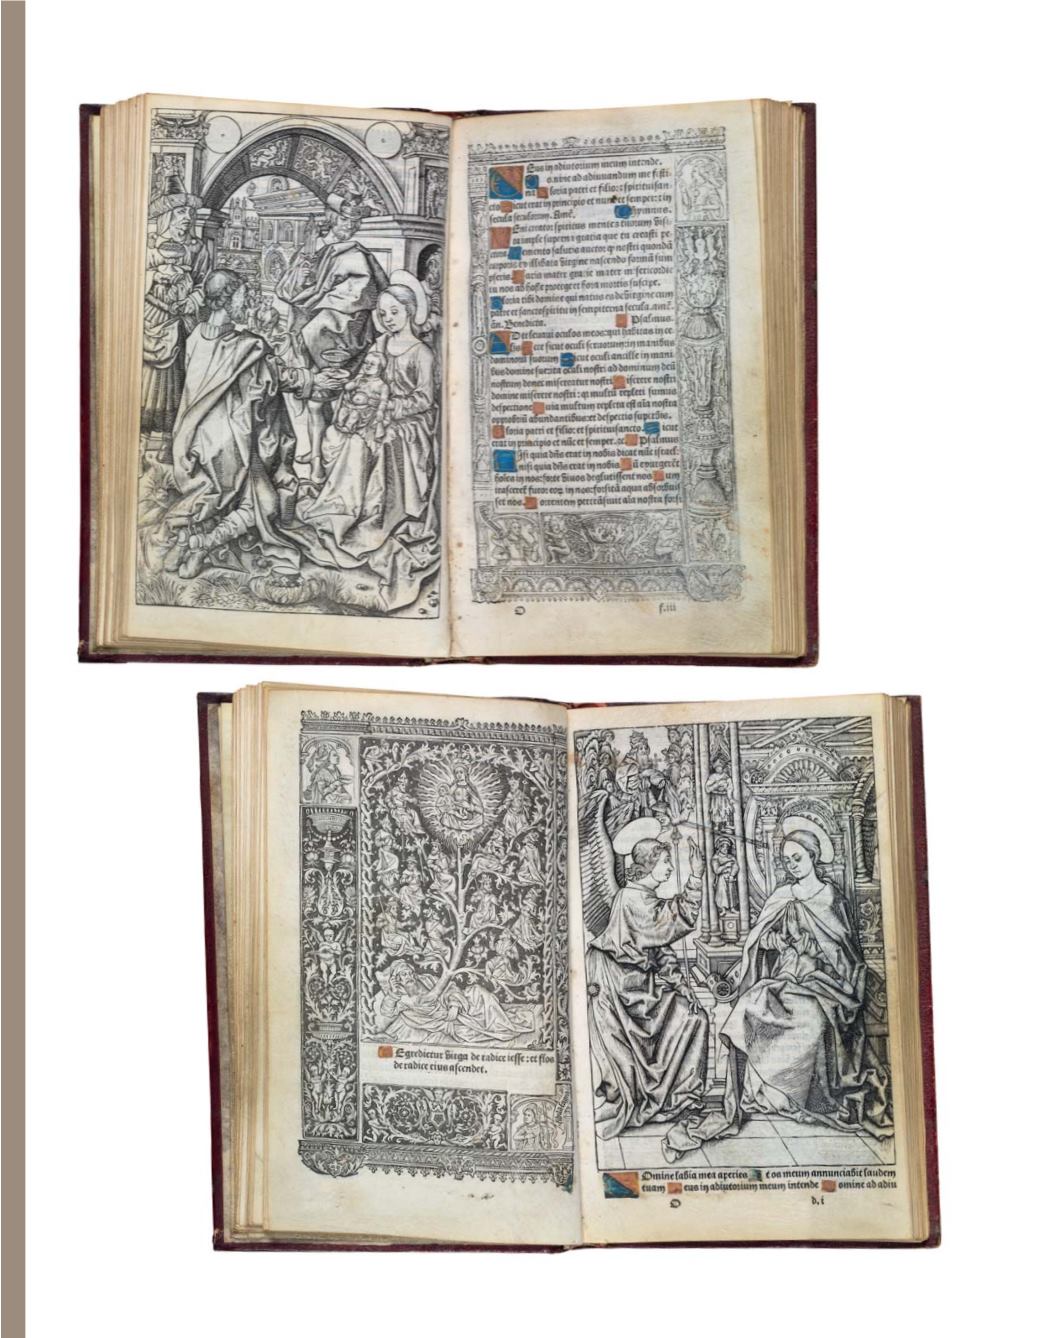 Eus in adiutorium meum intende.
omine ad adiuuandum me festi-
na loria patri et filio: et spiritui san-
cto icut erat in principio et nunc et semper: et in
secula seculorum. Amē. Hymnus.
Eni creator spiritus mentes tuorum visi-
ta imple superna gratia que tu creasti pe-
ctora emento salutis auctor qp nostri quondā
corporis ex illibata virgine nascendo formā sum
pseris. aria mater gracie mater misericordie
tu nos ab hoste protege et hora mortis suscipe.
loria tibi domine qui natus es de virgine cum
patre et sancto spiritu in sempiterna secula. amē.
añ. Benedicta. Psalmus
D te leuaui oculos meos: qui habitas in ce-
lis cce sicut oculi seruorum: in manibus
dominorū suorum icut oculi ancille in mani
bus domine sue: ita oculi nostri ad dominum deū
nostrum donec misereatur nostri iserere nostri
domine miserere nostri: qr multū repleti sumus
despectione uia multum repleta est aīa nostra
opprobriū abundantibus: et despectio superbis.
loria patri et filio: et spiritui sancto. icut
erat in principio et nūc et semper. Psalmus
Isi quia dñs erat in nobis dicat nūc israel:
nisi quia dñs erat in nobis ū exurgerēt
hoīes in nos: forte viuos deglutissent nos um
irasceret furor eoʒ in nos: forsitā aqua absorbuis
set nos. orrentem pertrāsiuit aīa nostra forsi
f.iii
Egredietur virga de radice iesse: et flos
de radice eius ascendet.
Omine labia mea aperies t os meum annunciabit laudem
tuam eus in adiutorium meum intende omine ad adiu
b.i